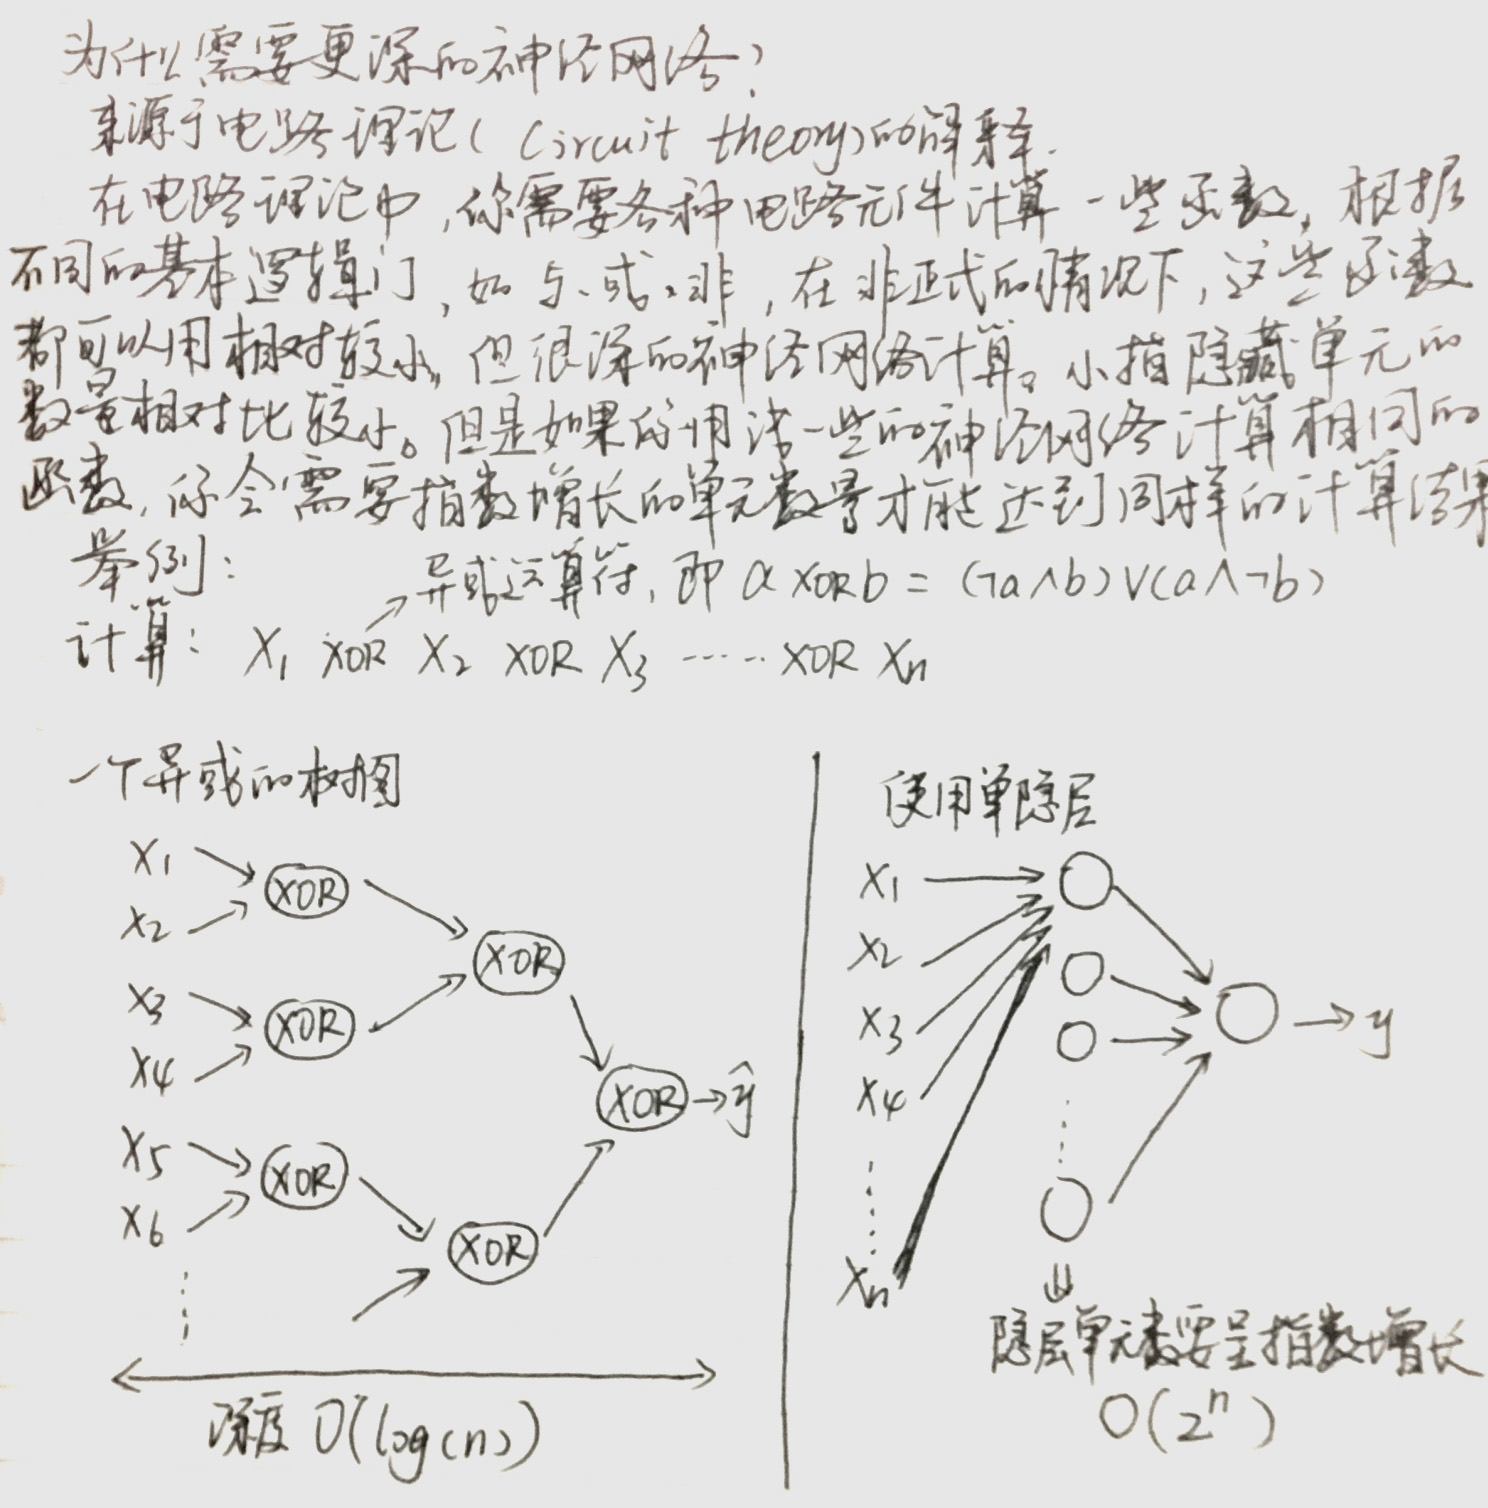 为什么需要更深的神经网络?
来源于电路理论(Circuit theory)的解释.
在电路理论中,你需要各种电路元件计算一些函数,根据
不同的基本逻辑门,如与、或、非,在非正式的情况下,这些函数
都可以用相对较小,但很深的神经网络计算。小指隐藏单元的
数量相对比较小。但是如果你用浅一些的神经网络计算相同的
函数,你会需要指数增长的单元数量才能达到同样的计算结果
举例:
异或运算符,即 a XOR b = (¬a∧b)∨(a∧¬b)
计算: X₁ XOR X₂ XOR X₃ ······ XOR Xₙ
一个异或的树图
X₁
XOR
X₂
XOR
X₃
XOR
X₄
XOR → ŷ
X₅
XOR
X₆
XOR
深度 O(log(n))
使用单隐层
X₁
X₂
X₃
→ y
X₄
Xₙ
隐层单元数要呈指数增长
O(2ⁿ)